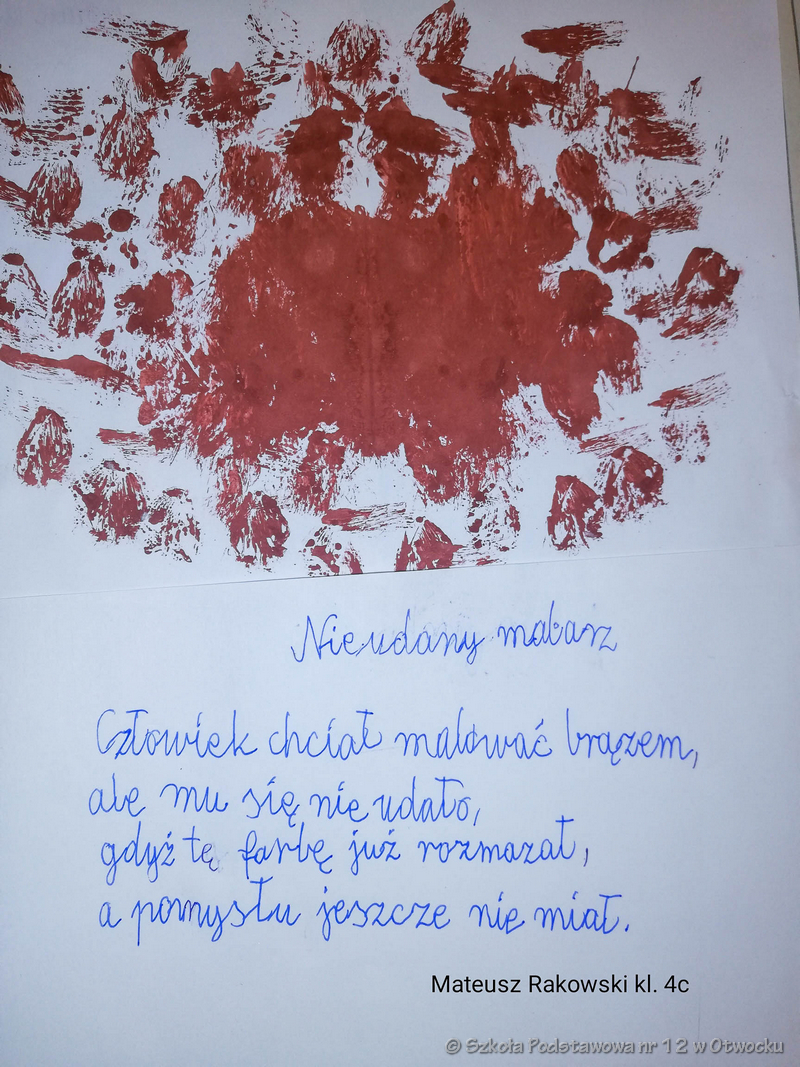 Nieudany malarz
Człowiek chciał malować brązem,
ale mu się nie udało,
gdyż tę farbę już rozmazał,
a pomysłu jeszcze nie miał.
Mateusz Rakowski kl. 4c
© Szkoła Podstawowa nr 12 w Otwocku